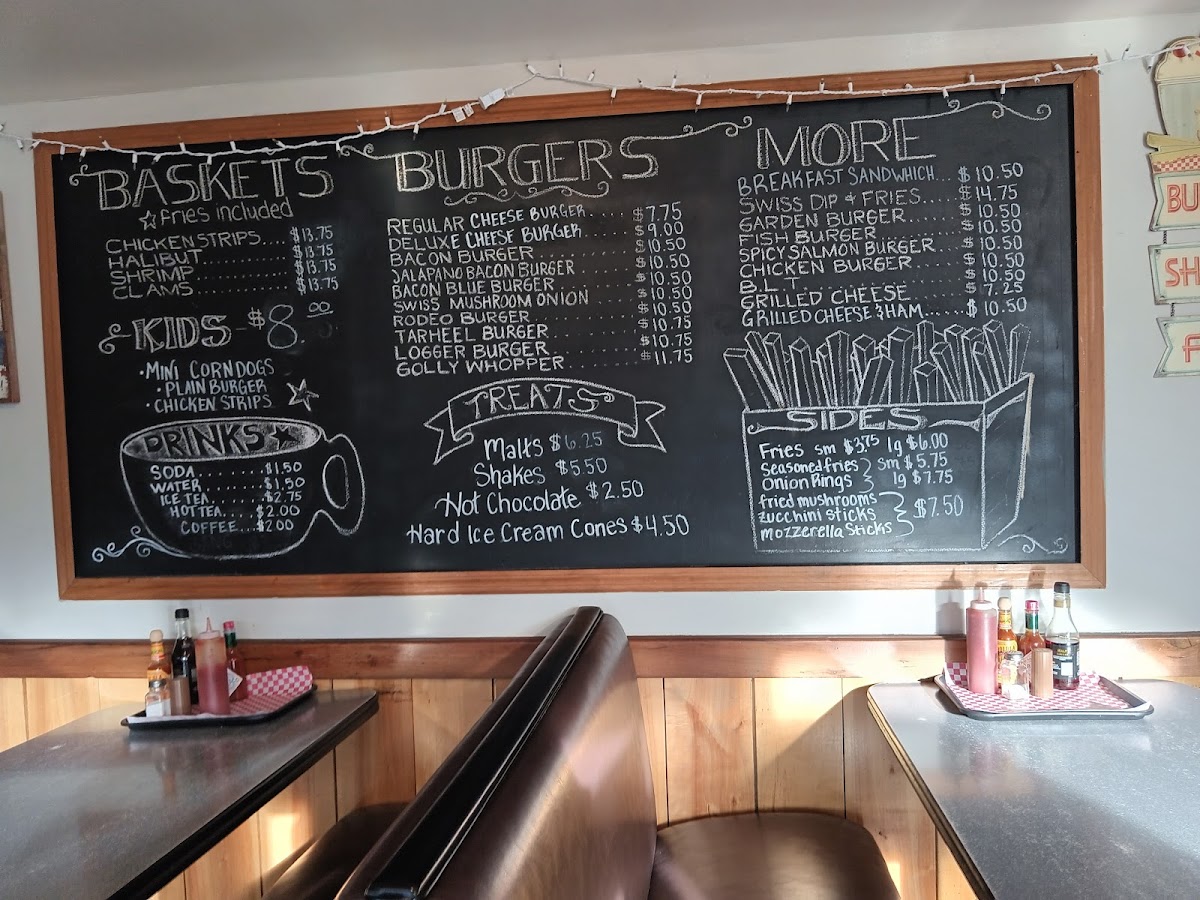 BASKETS
fries included
CHICKEN STRIPS.... $13.75
HALIBUT .......... $13.75
SHRIMP .......... $13.75
CLAMS .......... $13.75
KIDS - $8.00
• MINI CORNDOGS
• PLAIN BURGER
• CHICKEN STRIPS
DRINKS
SODA ........ $1.50
WATER ....... $1.50
ICE TEA ...... $2.75
HOT TEA.... $2.00
COFFEE... $2.00
BURGERS
REGULAR CHEESE BURGER..... $7.75
DELUXE CHEESE BURGER...... $9.00
BACON BURGER ............ $10.50
JALAPANO BACON BURGER ...... $10.50
BACON BLUE BURGER ......... $10.50
SWISS MUSHROOM ONION ..... $10.50
RODEO BURGER ............ $10.50
TARHEEL BURGER .......... $10.75
LOGGER BURGER........... $10.75
GOLLY WHOPPER.......... $11.75
TREATS
Malts $6.25
Shakes $5.50
Hot Chocolate $2.50
Hard Ice Cream Cones $4.50
MORE
BREAKFAST SANDWHICH... $10.50
SWISS DIP & FRIES..... $14.75
GARDEN BURGER....... $10.50
FISH BURGER ......... $10.50
SPICY SALMON BURGER .... $10.50
CHICKEN BURGER....... $10.50
B.L.T. ............. $10.50
GRILLED CHEESE ...... $7.25
GRILLED CHEESE & HAM...... $10.50
SIDES
Fries sm $3.75 lg $6.00
Seasoned fries } sm $5.75
Onion Rings } lg $7.75
fried mushrooms
zucchini sticks } $7.50
mozzerella sticks
BU
SH